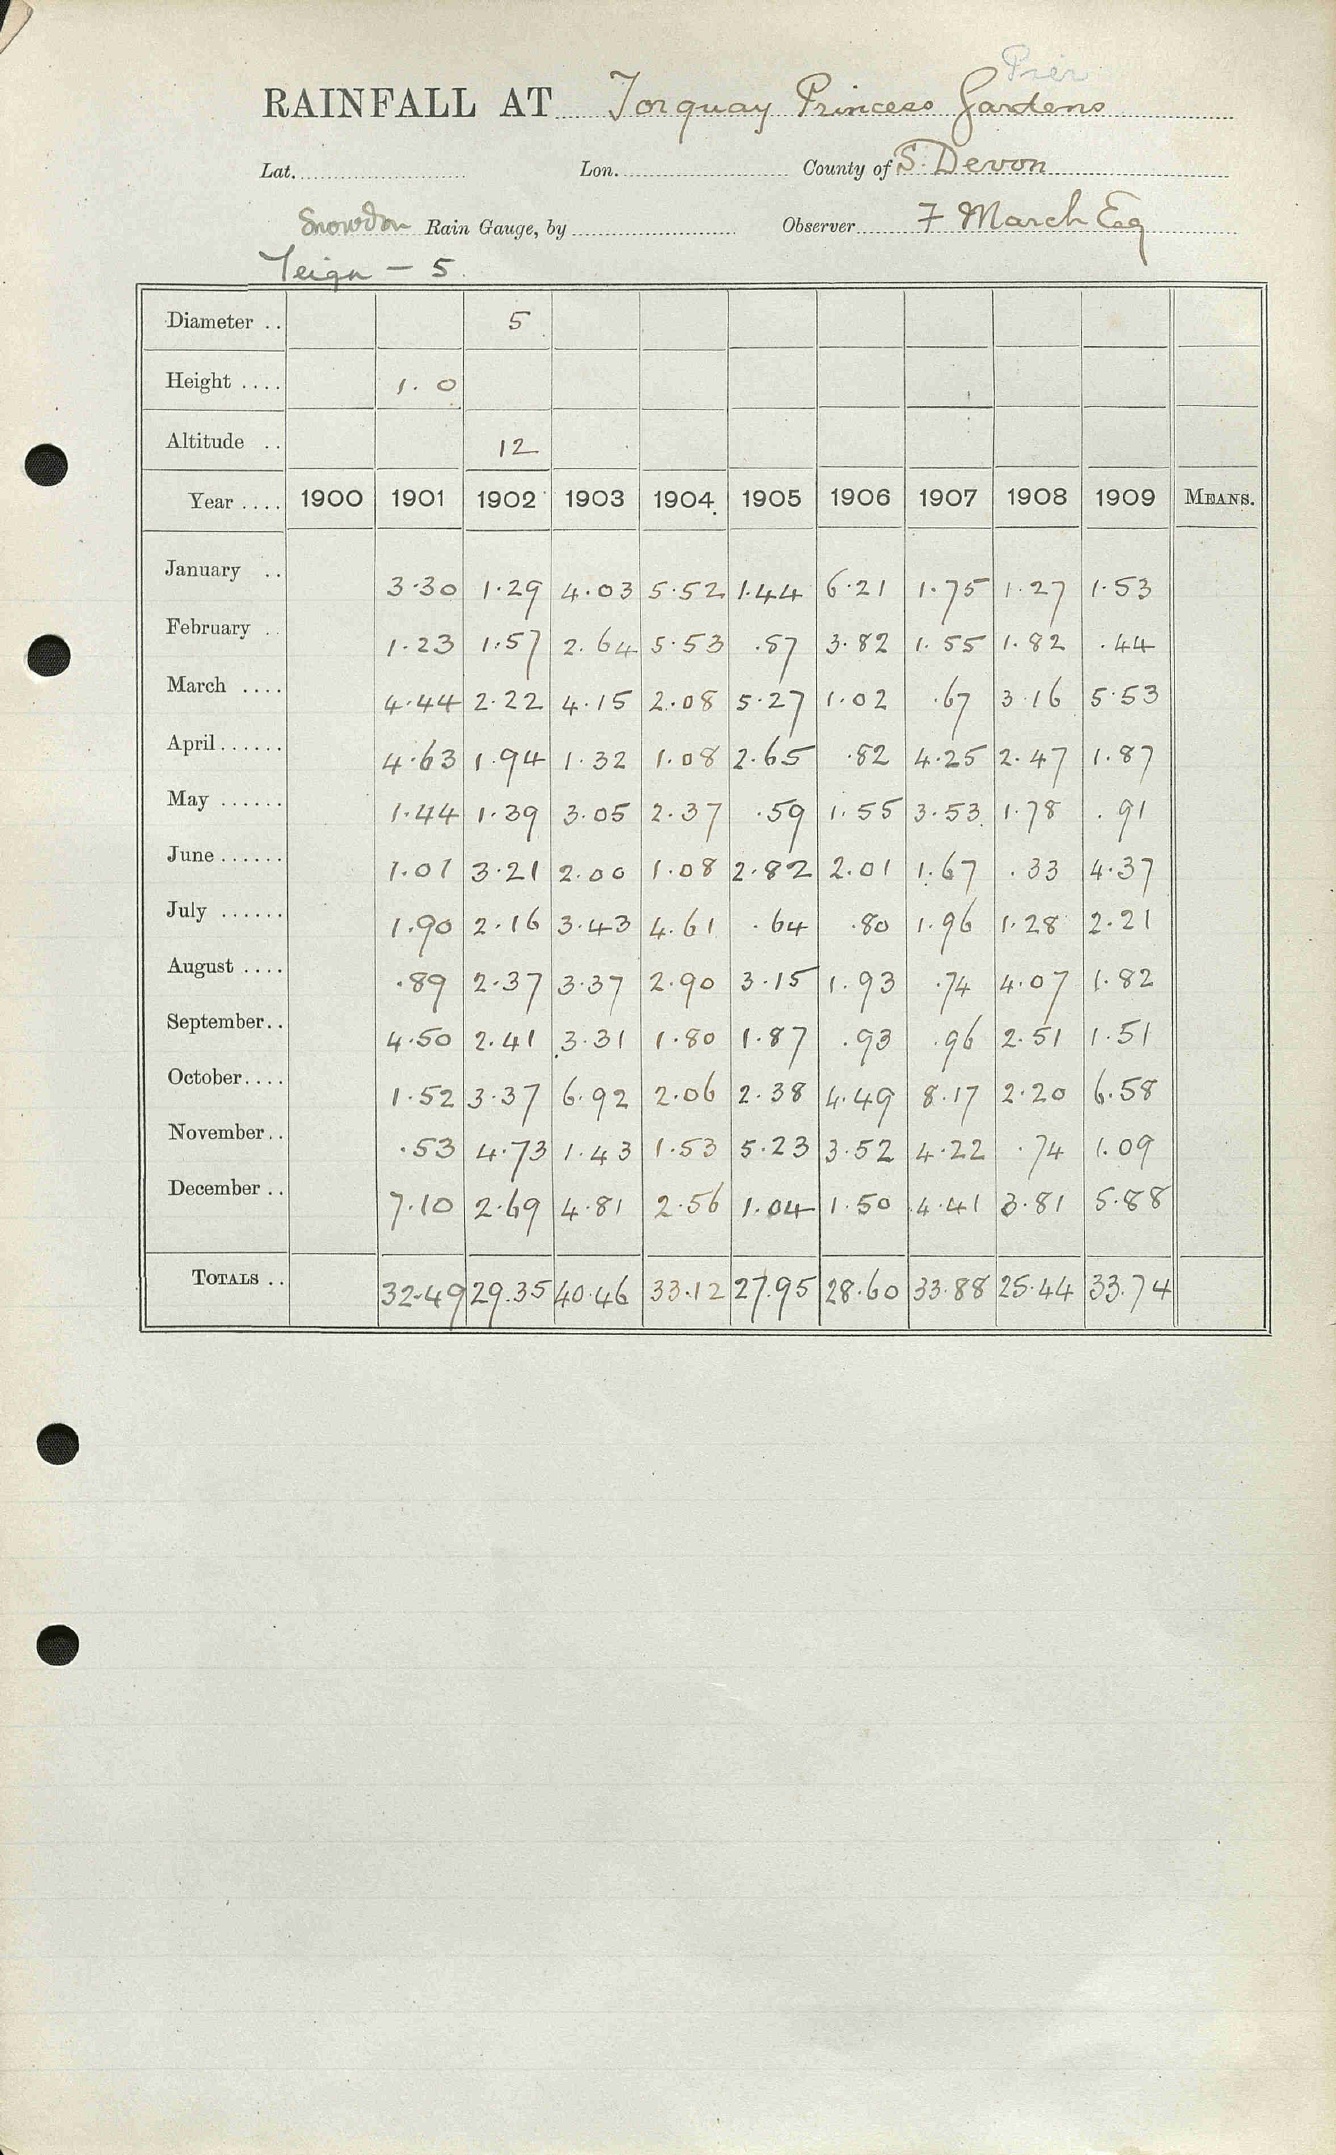 Pier
RAINFALL AT Torquay Princess Gardens
Lat. Lon. County of S. Devon
Snowdon Rain Gauge, by Observer F March Esq
Teign - 5
Diameter .. 5
Height .... 1. 0
Altitude .. 12
Year .... 1900 1901 1902 1903 1904 1905 1906 1907 1908 1909 MEANS.
January .. 3.30 1.29 4.03 5.52 1.44 6.21 1.75 1.27 1.53
February .. 1.23 1.57 2.64 5.53 .87 3.82 1.55 1.82 .44
March .... 4.44 2.22 4.15 2.08 5.27 1.02 .67 3.16 5.53
April ...... 4.63 1.94 1.32 1.08 2.65 .82 4.25 2.47 1.87
May ...... 1.44 1.39 3.05 2.37 .59 1.55 3.53 1.78 .91
June ...... 1.01 3.21 2.00 1.08 2.82 2.01 1.67 .33 4.37
July ...... 1.90 2.16 3.43 4.61 .64 .80 1.96 1.28 2.21
August .... .89 2.37 3.37 2.90 3.15 1.93 .74 4.07 1.82
September .. 4.50 2.41 3.31 1.80 1.87 .93 .96 2.51 1.51
October .... 1.52 3.37 6.92 2.06 2.38 4.49 8.17 2.20 6.58
November .. .53 4.73 1.43 1.53 5.23 3.52 4.22 .74 1.09
December .. 7.10 2.69 4.81 2.56 1.04 1.50 4.41 3.81 5.88
TOTALS .. 32.49 29.35 40.46 33.12 27.95 28.60 33.88 25.44 33.74